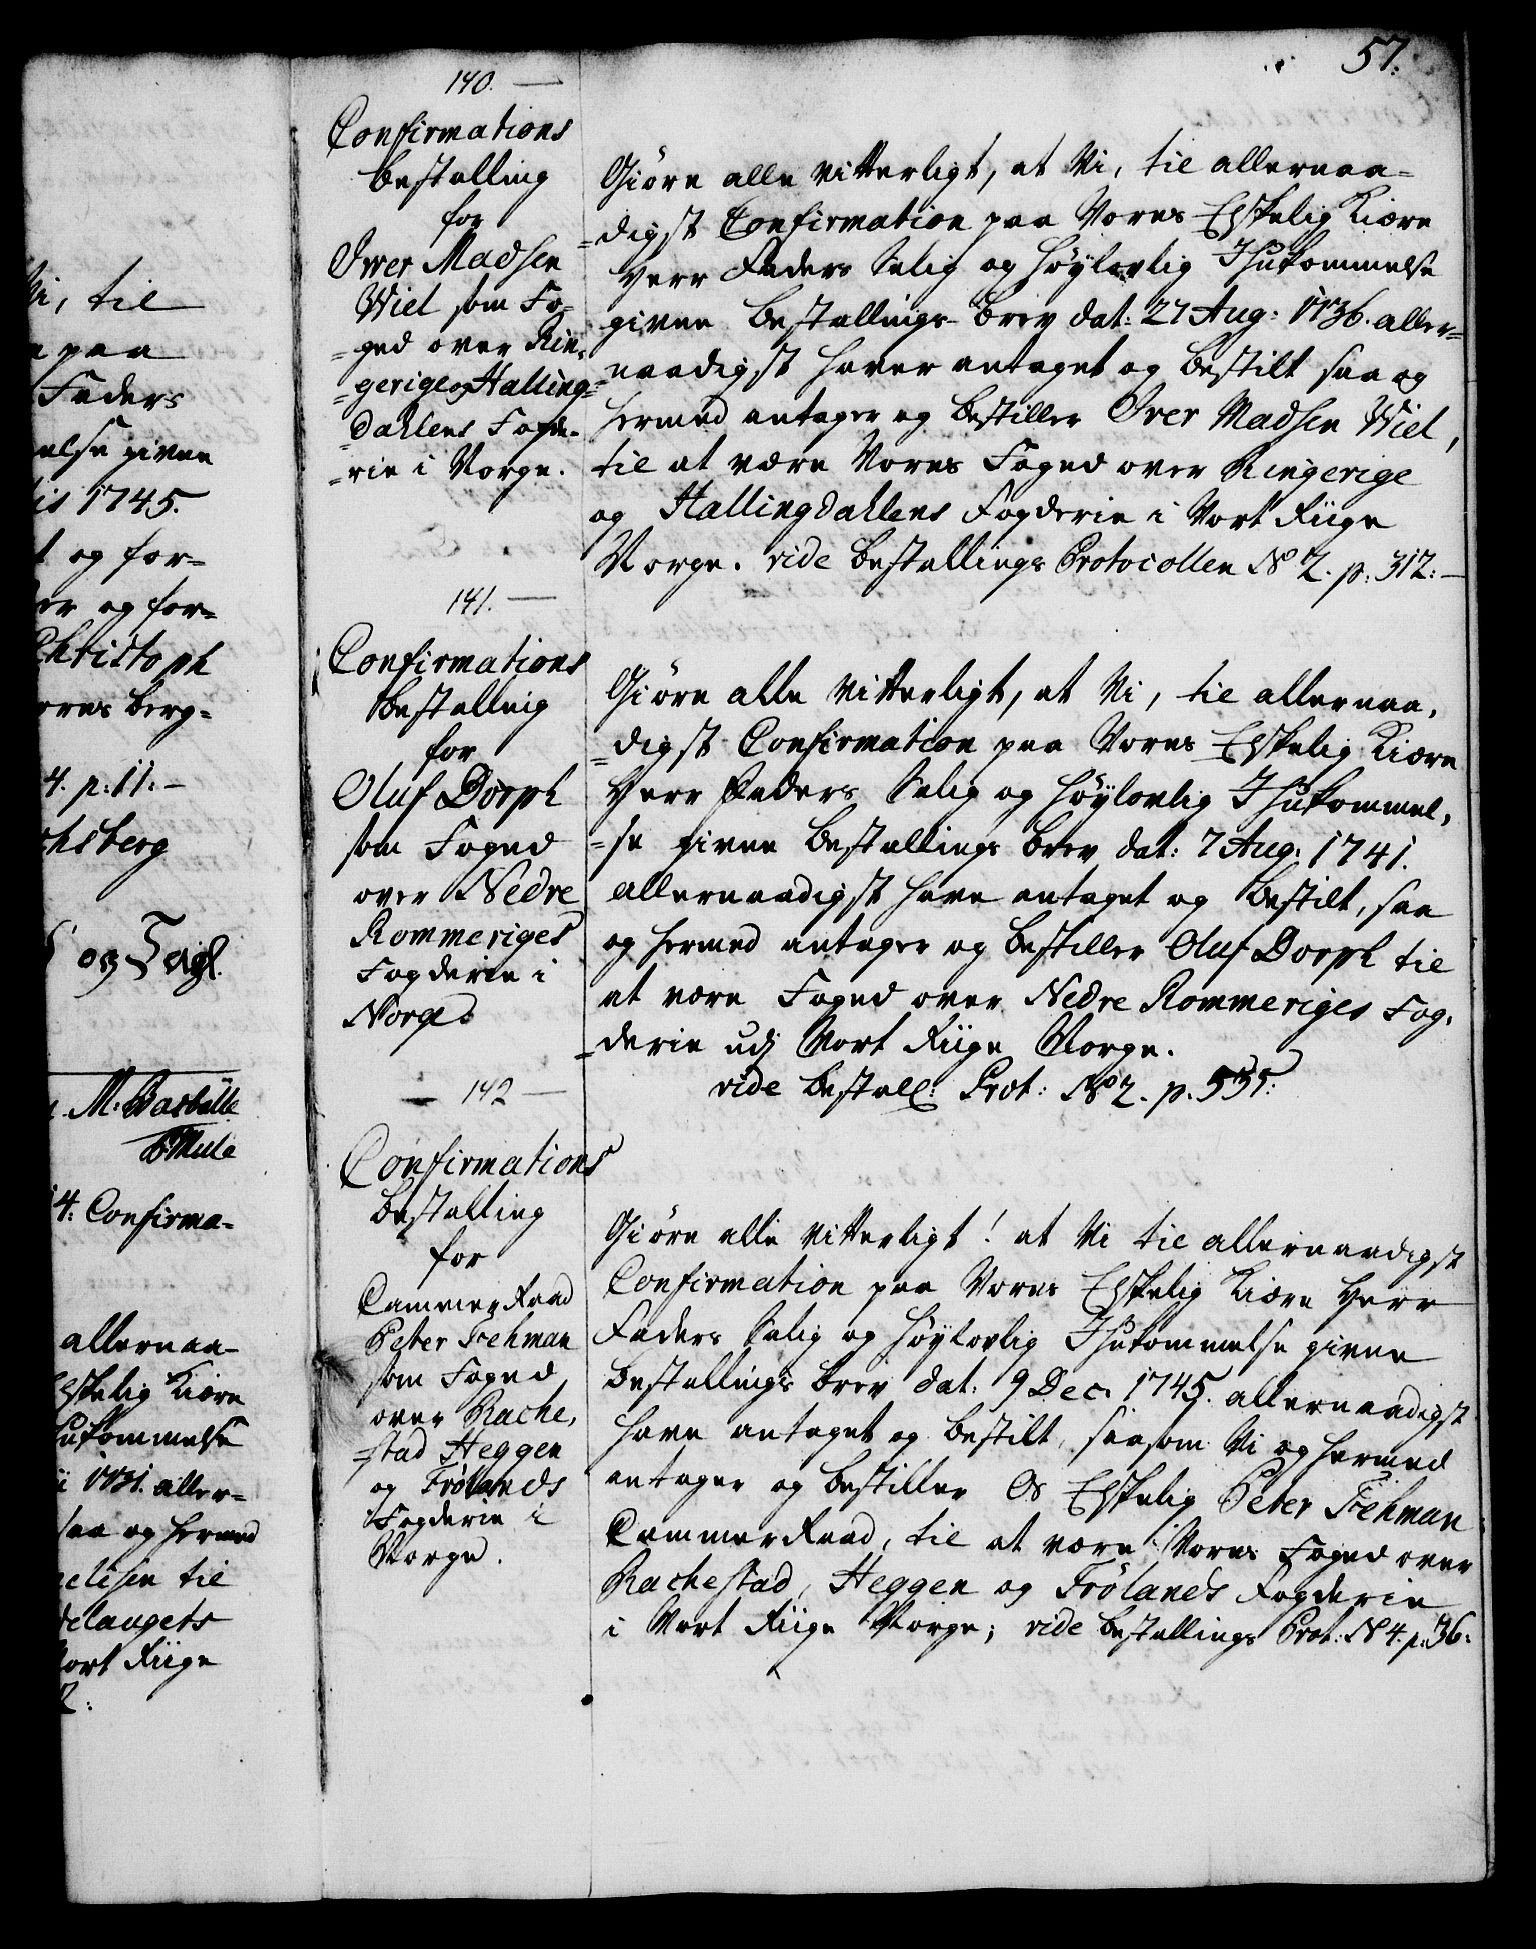 57.
140.
Confirmations
bestalling
for
Iwer Madsen
Wiel som Fo-
=ged over Rin-
=gerige og Halling-
=dahlens Fogde-
=rie i Norge.
Giøre alle vitterligt, at Vi, til allernaa=
=digst Confirmation paa Vores Elskelig Kiære
Herr Faders Salig og Høylovlig Ihukommelse
givne Bestallings-brev dat: 27 Aug: 1736. aller=
=naadigst haver antaget og bestilt saa og
hermed antager og bestiller Iver Madsen Wiel,
til at være Vores Foged over Ringerige
og Hallingdahlens Fogderie i Vort Riige
Norge. vide bestallings Protocollen No 2. p: 312:
141.
Confirmations
Bestalling
for
Oluf Dorph
som Foged
over Nedre
Rommeriges
Fogderie i
Norge.
Giøre alle vitterligt, at Vi, til allernaa-
=digst Confirmation paa Vores Elskelig Kiære
Herr Faders Salig og Høylovlig Ihukommel-
=se givne Bestallings brev dat: 7 Aug: 1741.
allernaadigst have antaget og bestilt, saa
og hermed antager og bestiller Oluf Dorph til
at være Foged over Nedre Rommeriges Fog-
=derie udj Vort Riige Norge.
vide bestall: Prot: No 2. p. 535:
142
Confirmations
bestalling
for
Cammer Raad
Peter Fehman
som Foged
over Rache-
=stad Heggen
og Frølands
Fogderie i
Norge.
Giøre alle vitterligt! at Vi til allernaadigst
Confirmation paa Vores Elskelig Kiære Herr
Faders Salig og Høylovlig Ihukommelse givne
Bestallings brev dat: 9 Dec: 1745. allernaadigst
have antaget og bestilt, saasom Vi og hermed
antager og bestiller Os Elskelig Peter Fehman
Cammer Raad, til at være Vores Foged over
Rachestad, Heggen og Frølands Fogderie
i Vort Riige Norge; vide bestallings Prot: No 4. p: 36:
Vi, til
paa
Faders
else givne
is 1745.
og for=
og for=
Christoph
ores berg=
4. p: 11:
chsberg
M: Barbülle
Mule
4: Confirma=
allernaa=
Elskelig Kiære
hukommelse
1731. aller=
saa og hermed
elisen til
delaugets
Vort Riige
2: